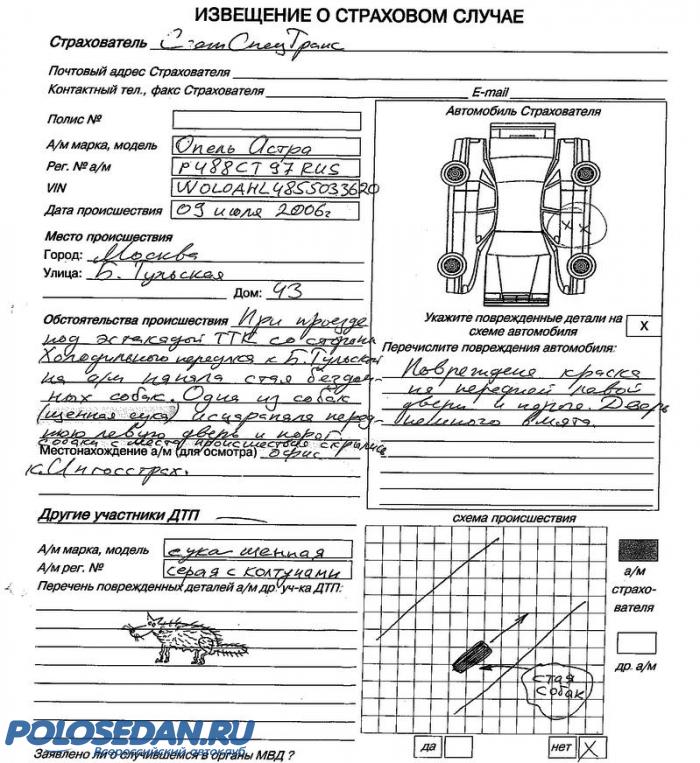 ИЗВЕЩЕНИЕ О СТРАХОВОМ СЛУЧАЕ
Страхователь СтатСпецТранс
Почтовый адрес Страхователя
Контактный тел., факс Страхователя E-mail
Полис №
А/м марка, модель Опель Астра
Рег. № а/м Р488СТ 97 RUS
VIN W0L0AHL4855033620
Дата происшествия 09 июля 2006г
Место происшествия
Город: Москва
Улица: Б. Тульская
Дом: 43
Обстоятельства происшествия При проезде
под эстакадой ТТК со стороны
Холодильного переулка к Б.Тульской
на а/м напала стая бездом-
ных собак. Одна из собак
(щенная сука) исцарапала перед-
нюю левую дверь и порог.
Собаки с места происшествия скрылись
Местонахождение а/м (для осмотра) офис
к.Ингосстрах.
Автомобиль Страхователя
X X
Укажите поврежденные детали на
схеме автомобиля X
Перечислите повреждения автомобиля:
Повреждена краска
на передней левой
двери и пороге. Дверь
немного вмята.
Другие участники ДТП
А/м марка, модель сука щенная
А/м рег. № серая с колтунами
Перечень поврежденных деталей а/м др. уч-ка ДТП:
схема происшествия
стая
собак
а/м
страхо-
вателя
др. а/м
POLOSEDAN.RU
Всероссийский автоклуб
Заявлено ли о случившемся в органы МВД ? да нет X